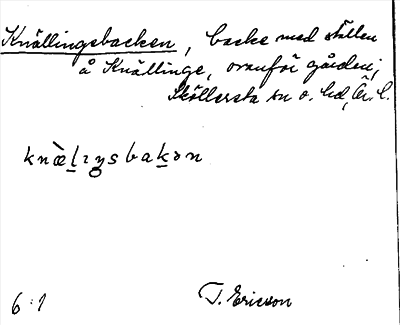 Knällingsbacken, backe med ställen
å Knällinge, ovanför gården;
Sköllersta sn o. hd, Ör. l.
knæ̀lıŋsbakən
6:1
T. Ericson